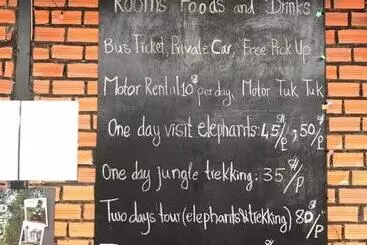 Rooms, Foods and Drinks
Bus Ticket, Private Car, Free Pick Up
Motor Rental 10$ per day, Motor Tuk Tuk
One day visit elephants: 45$/P, 50$/P
One day jungle trekking: 35$/P
Two days tour (elephants & trekking) 80$/P